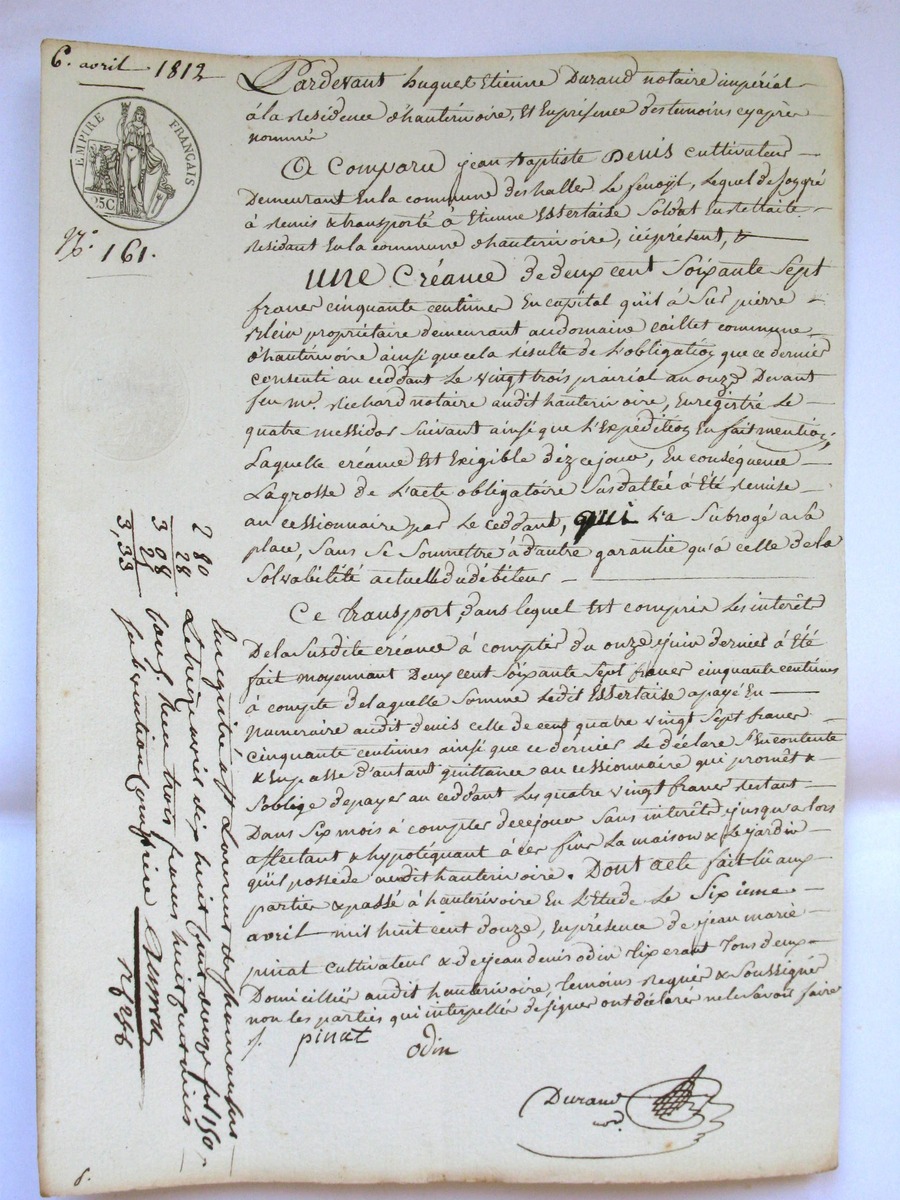 6. avril 1812
EMPIRE FRANÇAIS
25C
N.° 161.
Pardevant huguet Etienne Durand notaire impérial
à la Residence d'hauterivoire, Et En présence des temoins cy après
nommés
A Comparu jean Baptiste Denis Cultivateur
Demeurant En la commune des halles Le fenoÿl, Lequel de son gré
à Remis & transporté à Etienne Essertaise Soldat En Rettaite
Residant En la commune d'hauterivoire, ici présent,
une Créance de deux cent Soixante Sept
francs cinquante centimes En capital qu'il à Sur pierre
propriétaire demeurant au domaine caillet commune
d'hauterivoire ainsi que cela résulte de L'obligation que ce dernier
consenti au ceddant Le vingt trois prairial an onze Devant
feu m.e Richard notaire audit hauterivoire, Enregistré Le
quatre messidor Suivant ainsi que L'Expédition En fait mention,
Laquelle créance Est Exigible déz ce jour, En consequence
La grosse de L'acte obligatoire Susdattée à Eté Remise
au cessionnaire par Le ceddant, qui L'a Subrogé à sa
place, Sans Se Soumettre à d'autre garantie qu'à celle de la
Solvabilité actuelle du débiteur
Ce transport, dans lequel Est compris Les interêts
De la Susdite créance à compter du onze juin dernier à Eté
fait moyennant Deux cent Soixante Sept francs cinquante centimes
à compte de laquelle Somme Ledit Essertaise a payé En
Numeraire audit denis celle de cent quatre vingt Sept francs
cinquante centimes ainsi que ce dernier Le déclare S'En contente
& En passe d'autant quittance au cessionnaire qui promêt &
S'oblige de payer au ceddant Les quatre vingt francs Restant
Dans Six mois à compter de ce jour Sans interêts jusqu'alors
affectant & hypotéquant à ces fins La maison & Le jardin
qu'il possede audit hauterivoire. Dont acte fait lû aux
parties & passé à hauterivoire En L'Etude Le Sixieme
avril mil huit cent douze, En présence de jean marie
pinat cultivateur & de jean denis odin tixerant tous deux
Domiciliés audit hauterivoire, temoins Requis & Soussignés
non les parties qui interpellées de signer ont déclaré ne le savoir faire
pinat
odin
Durand
2 80
28
3 08
25
3,33
Enregistré à St Laurent de chamousset
Le treize avril dix huit cent douze f.o 150
trois francs huit centimes
subvention